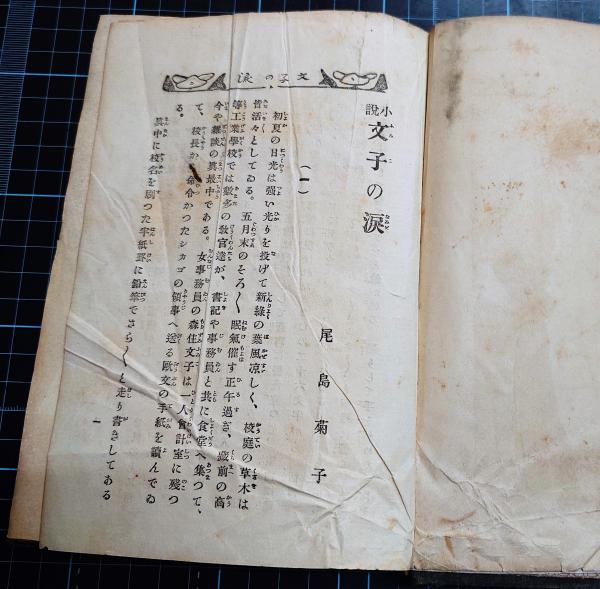 文子の涙
小説 文子の涙
尾島菊子
(一)
初夏の日光は强い光りを投げて新綠の葉風凉しく、校庭の草木は
皆活々としてゐる。五月末のそろ〳〵眠氣催す正午過ぎ、藏前の高
等工業學校では數多の敎官達が、書記や事務員と共に食堂へ集つて、
今や雜談の眞最中である。女事務員の森住文子は一人會計室に殘つ
て、校長から命令かつたシカゴの領事へ送る歐文の手紙を讀んでゐ
る。
眞中に校名を刷つた半紙罫に鉛筆でさら〳〵と走り書きしてある
一